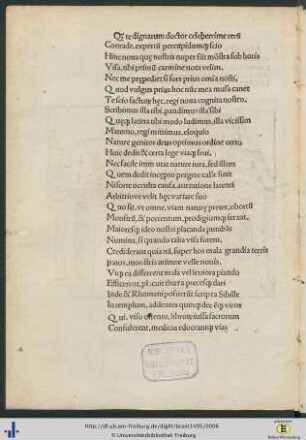 Qͥ te dignarum doctor celeberrime rerū
Conrade, expertū perēqꝫ idumqꝫ scio
Hinc noua quę nostris nuper sūt mōstra sub horis
Visa, tibi primū carmine nota velim.
Nec me prępediet si fors prius omīa nosti,
Quod vulgus prius hoc nūc mea musa canet
Te scio facturū hęc, regi noua cognita nostro.
Scribimus illa tibi, pandimus illa sibi
Quęqꝫ latina tibi modo ludimus, illa vicissim
Materno, regi mittimus, eloquio
Nature genitor deus optimus ordine certo
Huic dedit & certa lege viaqꝫ frui.
Nec facile hunc vtat nature iura, sed illum
Quem dedit incępto pergere calle sinit
Ni forte occulta causa, aut ratione latenti
Arbitrioue velit hęc variare suo
Quo sit, vt omne, viam naturę preter, obortū
Monstrū, & portentum, prodigiumqꝫ ferant,
Maioresqꝫ ideo nostri placanda putabāt
Numina, si quando talia visa forent.
Crediderant quia nā, super hos mala grandia terris
monstris mittere velle nouis,
Vtqꝫ ea differrent mala vel leuiora piando
Efficerent, placuit thura precesqꝫ dari
Inde & Rhomani posuerūt scripta Sibille
In templum, addentes quinqꝫ decēqꝫ viros
Qui, viso ostento, librosqꝫ iussa sacrorum
Consulerent, medicas edocerantqꝫ vias
http://dl.ub.uni-freiburg.de/diglit/brant1495/0006
© Universitätsbibliothek Freiburg